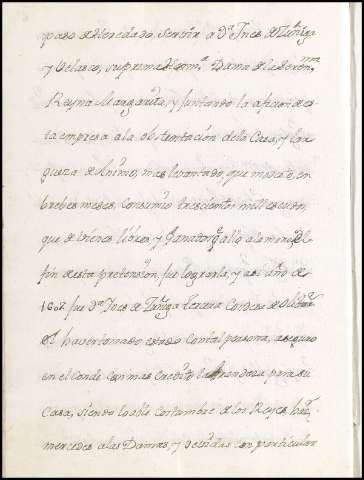 paso adelencaldo, seruir a D.ª Ines de Zuñiga
y Velasco, suprema Dama de la Seren.ma
Reyna Margarita, y juntando la aficion de es
ta empresa a la obstentación dela Casa, y lar
gueza de Animo, mas levantado, que mirado, en
brebes meses, consumio trescientos mill escudos,
que de vienes libres, y ganados allo a la mano, el
fin de esta pretension, fue lograrla, y asi año de
1607 fue D.ª Ines de Zuñiga tercera Condesa de Olibar.s
El haver tomado estado con tal persona, aseguro
en el Conde con mas credito la Grandeza para su
Casa, siendo loable costumbre de los Reyes, hacer
mercedes a las Damas, y devidas con particular